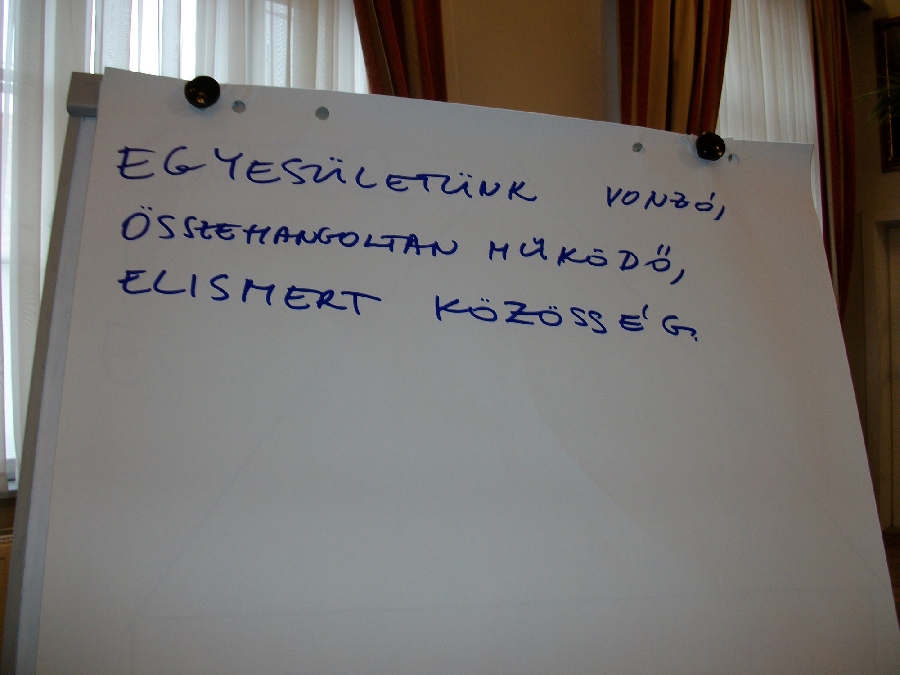 EGYESÜLETÜNK VONZÓ,
ÖSSZEHANGOLTAN MŰKÖDŐ,
ELISMERT KÖZÖSSÉG.